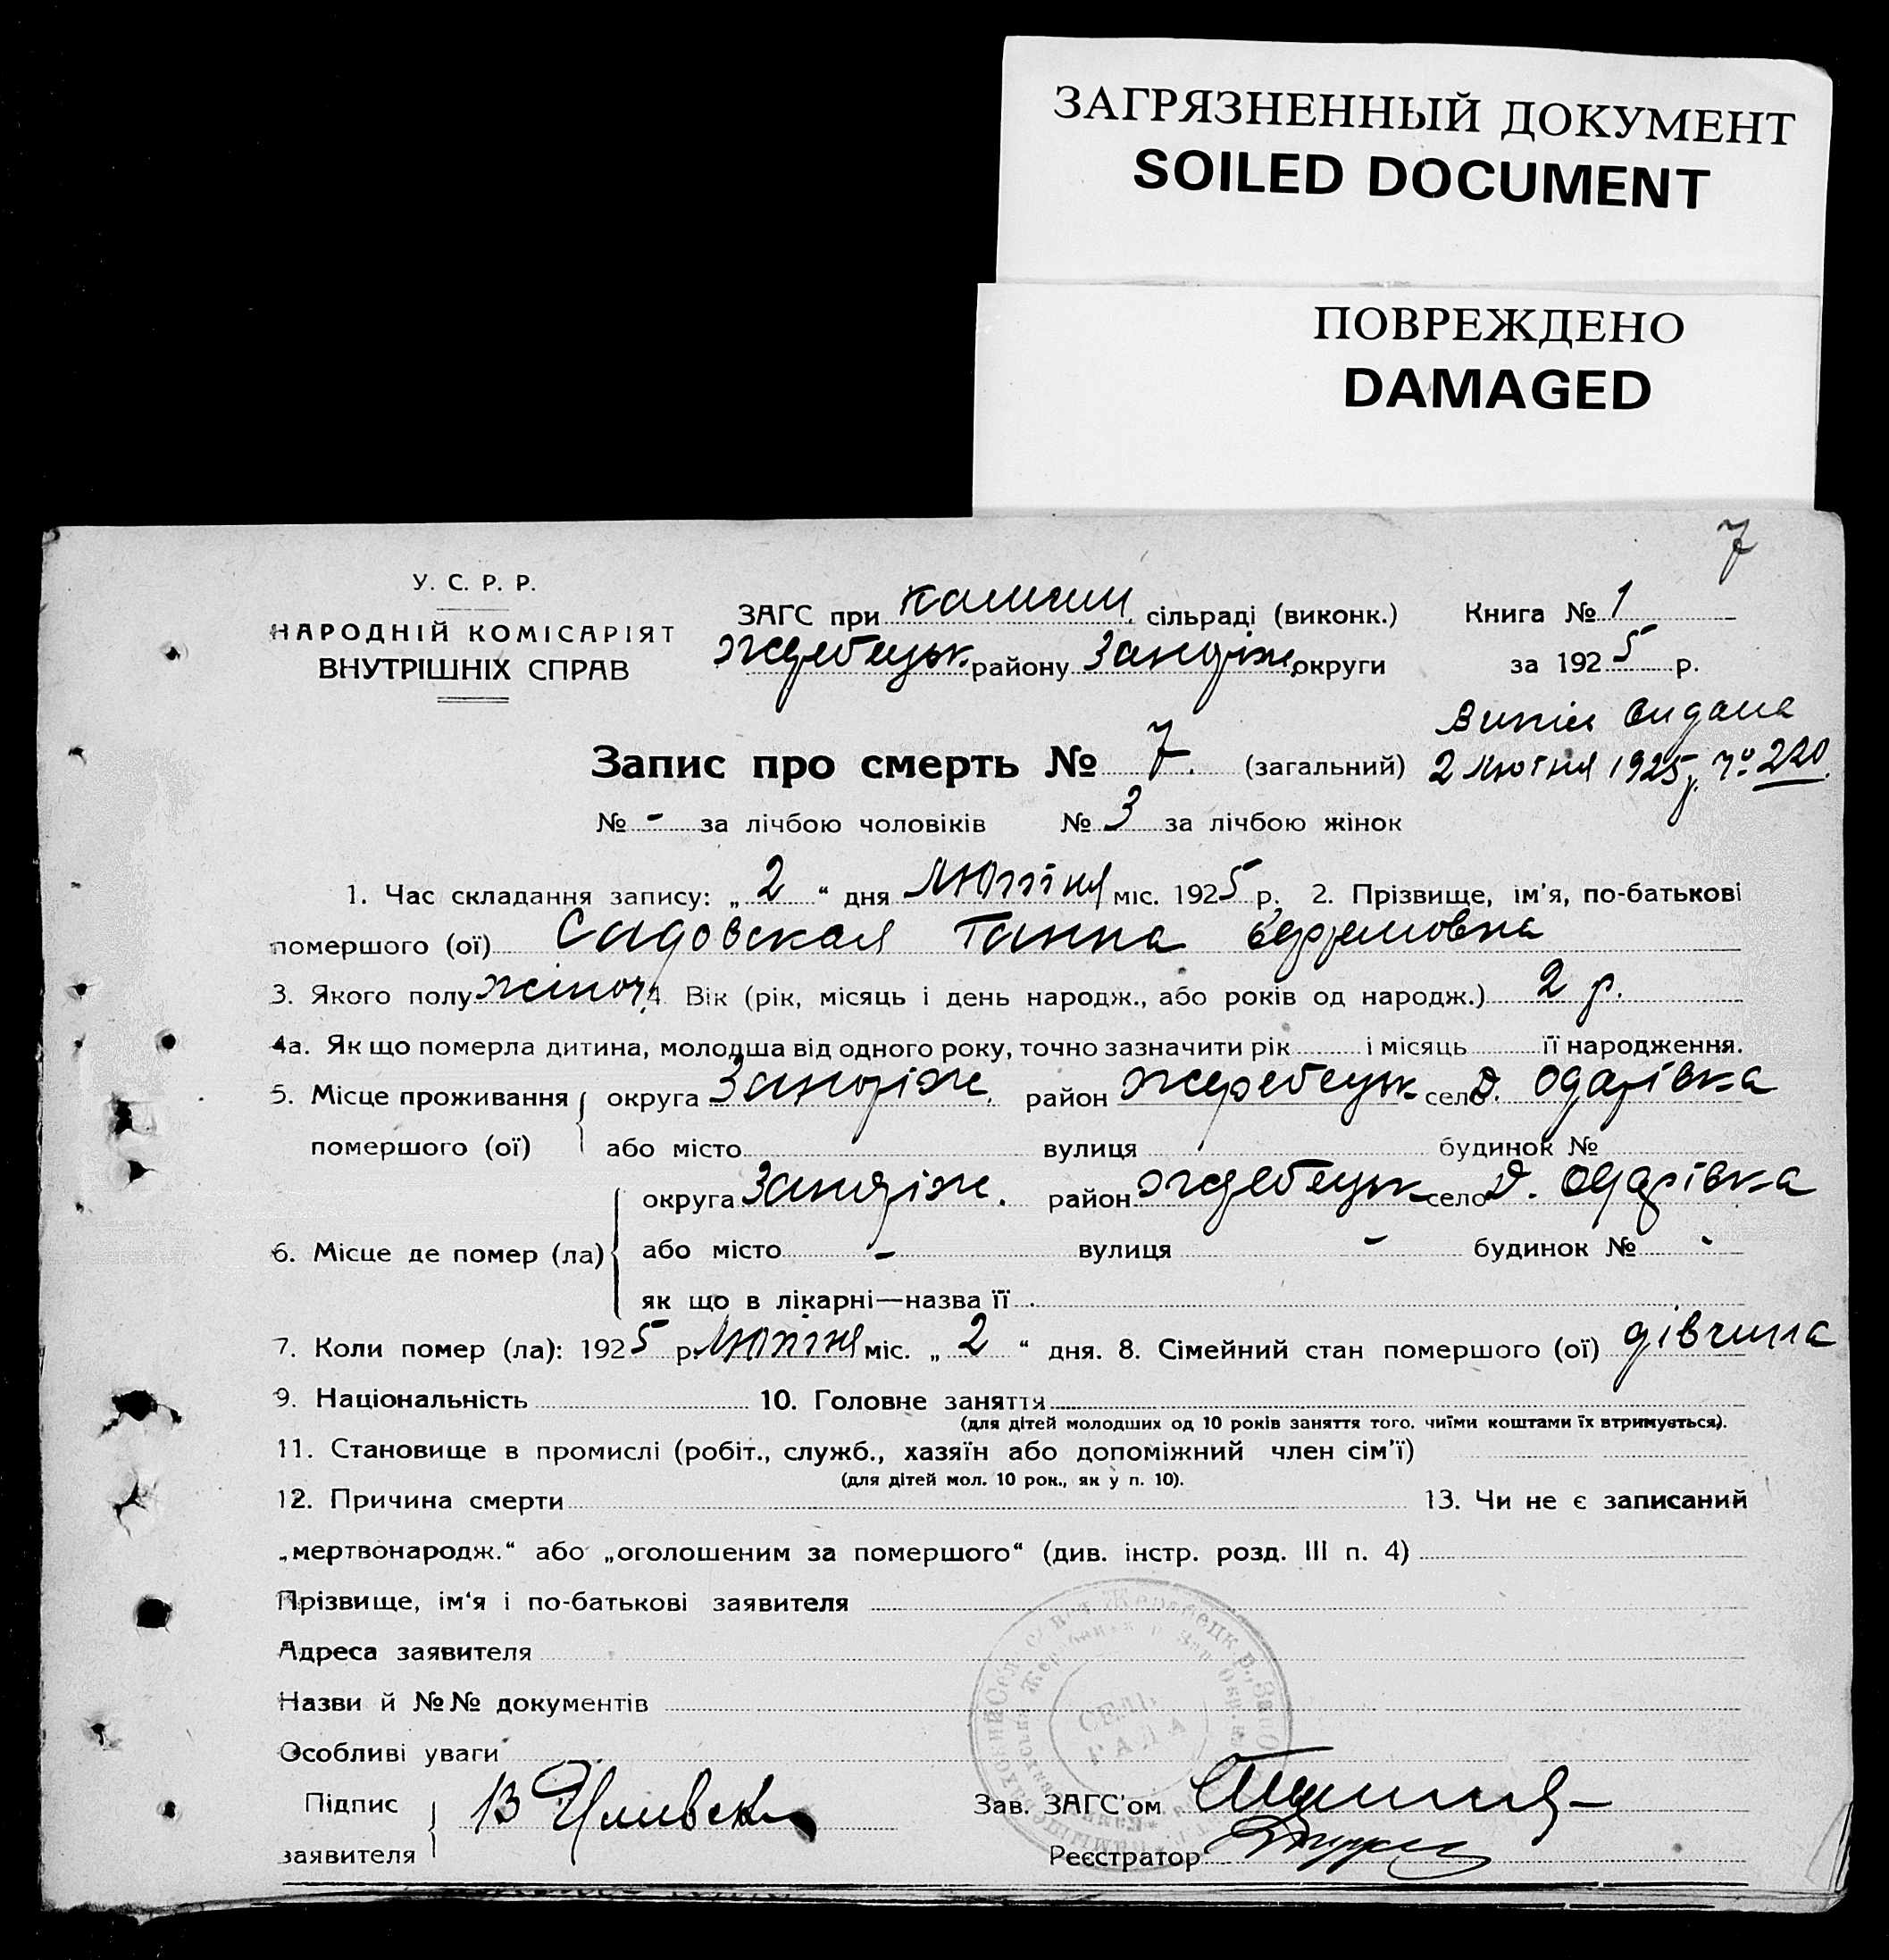 ЗАГРЯЗНЕННЫЙ ДОКУМЕНТ
SOILED DOCUMENT
ПОВРЕЖДЕНО
DAMAGED
7
У. С. Р. Р.
НАРОДНІЙ КОМІСАРІЯТ
ВНУТРІШНІХ СПРАВ
ЗАГС при сільраді (виконк.) Книга № 1
Жеребецьк. району Запоріж. округи за 1925 р.
Випис видана
2 Лютня 1925 р. № 220
Запис про смерть № 7. (загальний)
№ - за лічбою чоловіків № 3 за лічбою жінок
1. Час складання запису: „ 2 “ дня Лютня міс. 1925 р. 2. Прізвище, ім'я, по-батькові
помершого (ої) Садовская Ганна Ефремовна
3. Якого полу жіноч. 4. Вік (рік, місяць і день народж., або років од народж.) 2 р.
4а. Як що померла дитина, молодша від одного року, точно зазначити рік і місяць її народження.
5. Місце проживання округа Запоріж. район Жеребецьк село д. Одарівка
помершого (ої) або місто вулиця будинок №
округа Запоріж. район Жеребецьк село д. Одарівка
6. Місце де помер (ла) або місто - вулиця - будинок № -
як що в лікарні—назва її
7. Коли помер (ла): 1925 р. Лютня міс. „ 2 “ дня. 8. Сімейний стан помершого (ої) дівчина
9. Національність 10. Головне заняття
(для дітей молодших од 10 років заняття того, чиїми коштами їх втримується).
11. Становище в промислі (робіт., служб., хазяїн або допоміжний член сім'ї)
(для дітей мол. 10 рок., як у п. 10).
12. Причина смерти 13. Чи не є записаний
„мертвонародж.“ або „оголошеним за помершого“ (див. інстр. розд. III п. 4)
Прізвище, ім'я і по-батькові заявителя
Адреса заявителя
Назви й №№ документів
Особливі уваги
СЕЛЬ
РАДА
Підпис
заявителя
Зав. ЗАГС'ом
Реєстратор